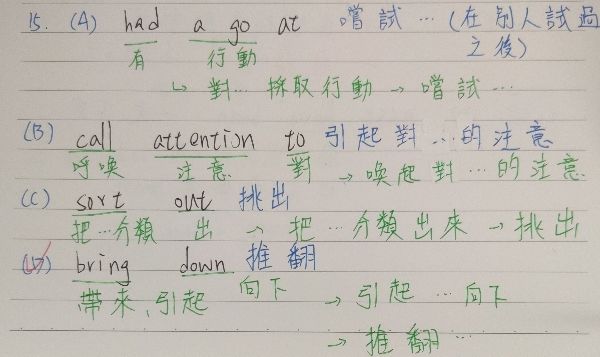 15. (A) had a go at 嚐試…(在別人試過
之後)
有 行動
↳ 對… 採取行動 → 嚐試…
(B) call attention to 引起對…的注意
呼喚 注意 對 → 喚起對…的注意
(C) sort out 挑出
把…分類 出 → 把…分類出來 → 挑出
(D) bring down 推翻
帶來、引起 向下 → 引起…向下
→ 推翻…